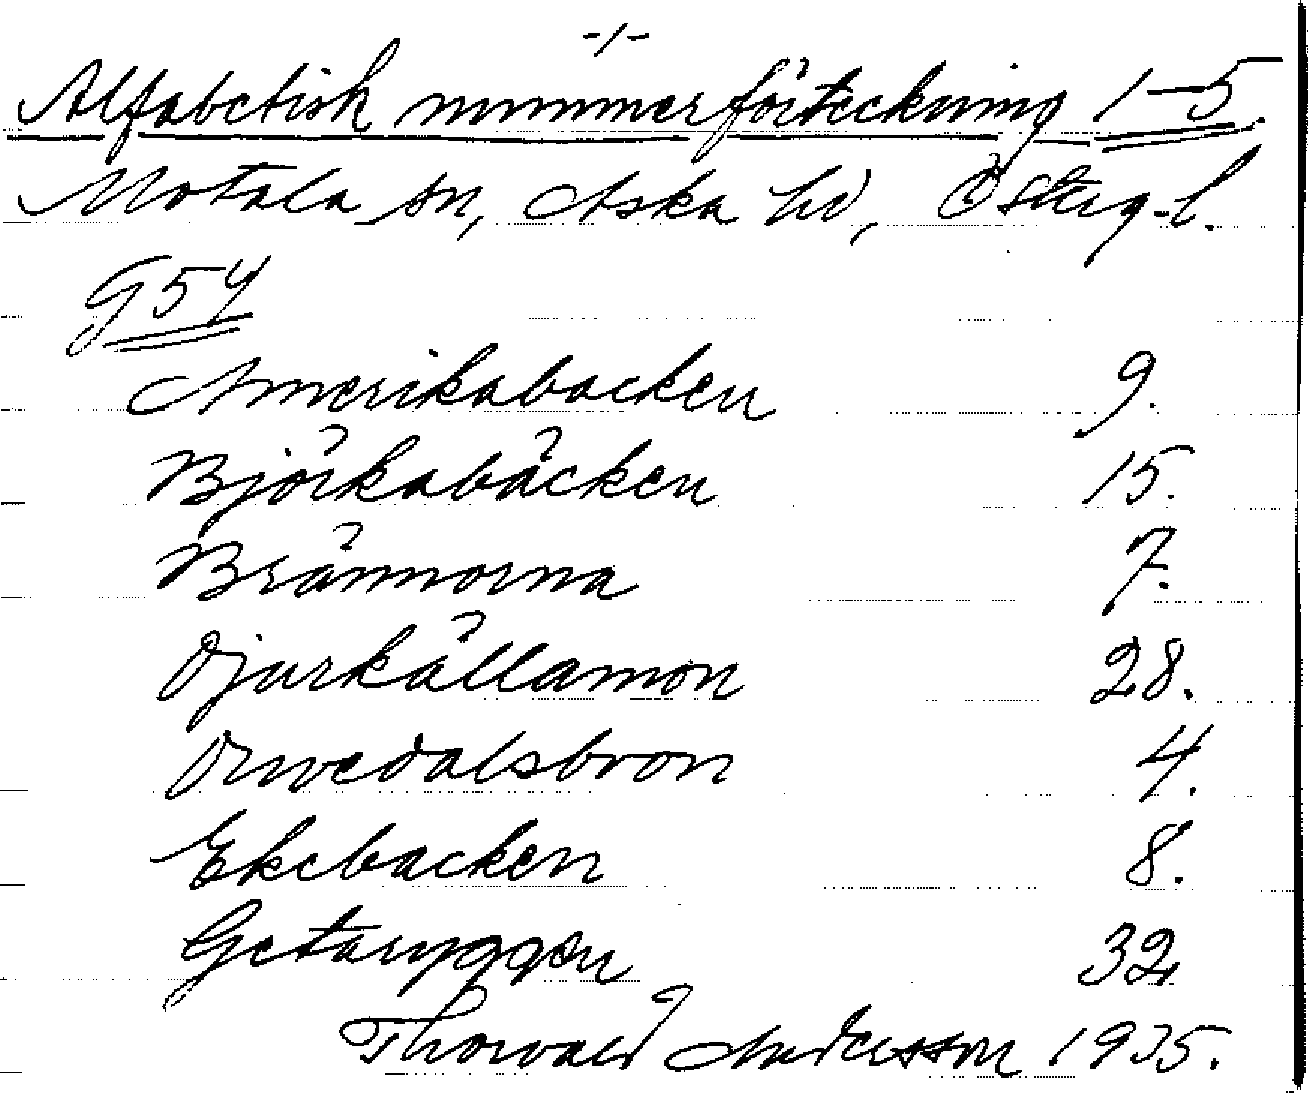 -1-
Alfabetisk nummerförteckning 1-5.
Motala sn, Aska hd, Österg.l.
G54
Amerikabacken 9.
Björkabäcken 15.
Brännorna 7.
Djurkällamon 28.
Druvedalsbron 4.
Ekebacken 8.
Getaryggen 32
Thorvald Andersson 1935.